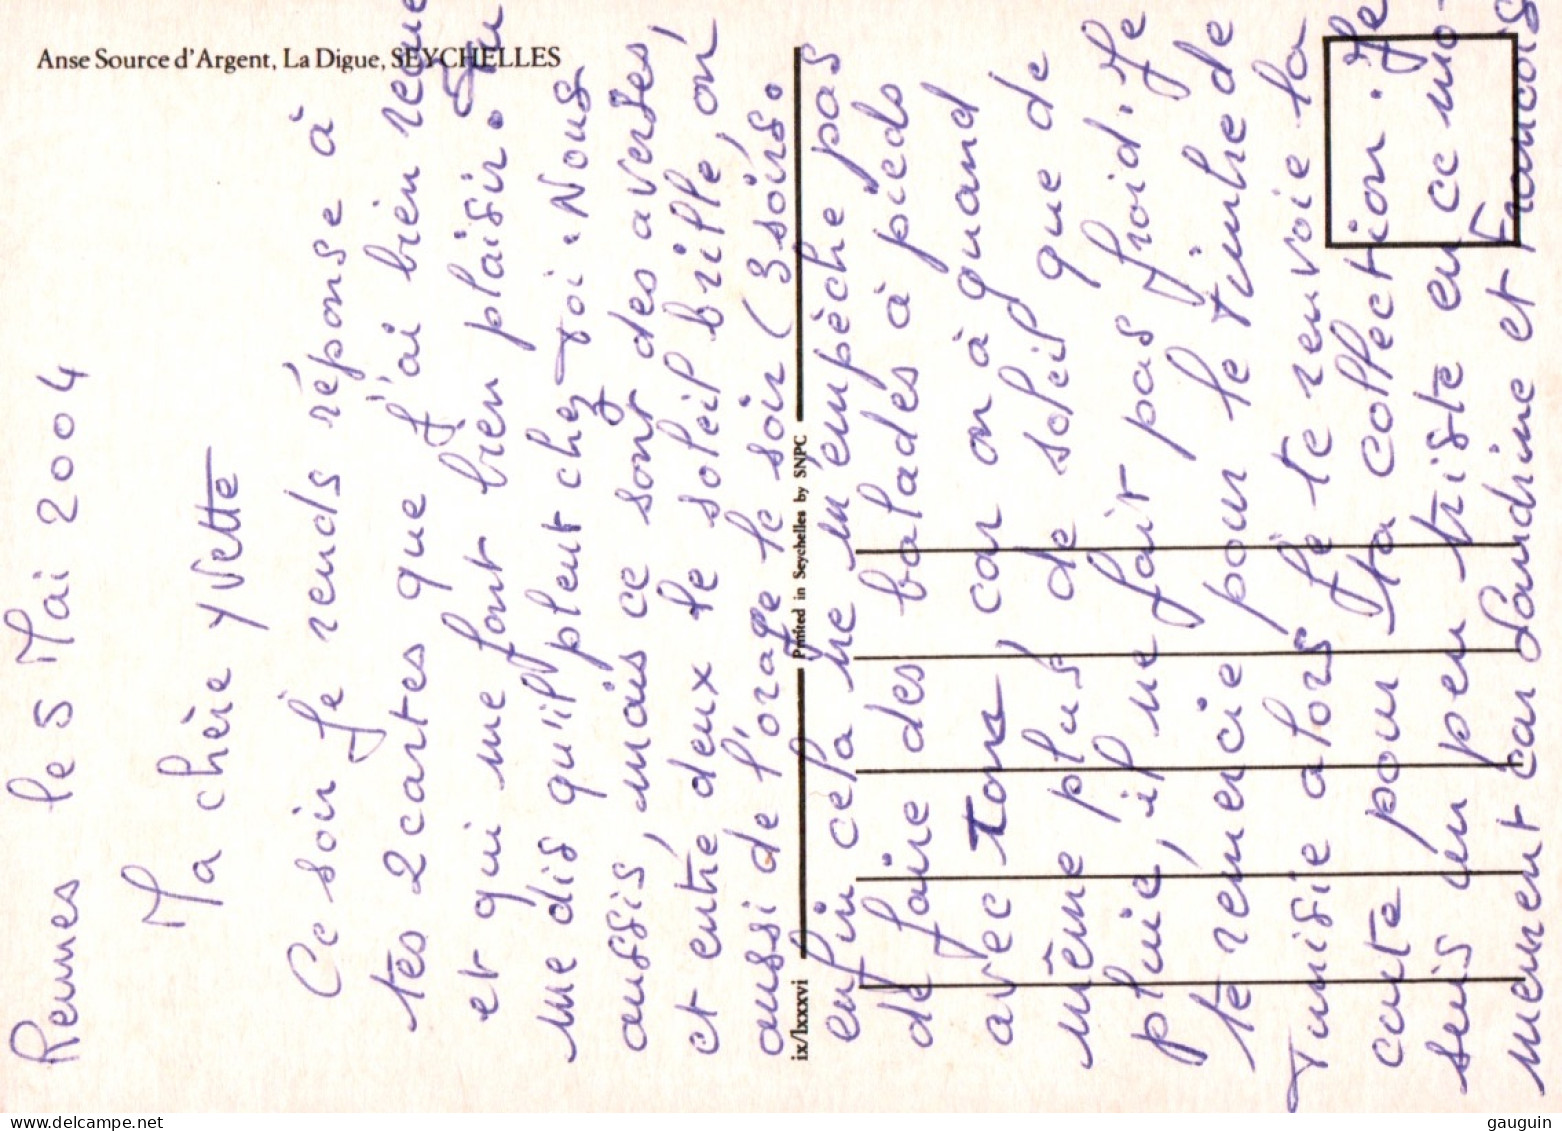 Anse Source d'Argent, La Digue, SEYCHELLES
Rennes le 5 Mai 2004
Ma chère Yvette
Ce soir je rends réponse à
tes 2 cartes que j'ai bien reçue
et qui me font bien plaisir. Tu
me dis qu'il pleut chez toi. Nous
aussis, mais ce sont des averses,
et entre deux le soleil brille, on
aussi de l'orage le soir (3 soirs.
enfin cela ne m'empèche pas
de faire des balades à pieds
avec Tons, car on à quand
même plus de soleil que de
pluie, il ne fait pas froid. Je
te remercie pour le timbre de
Tunisie alors je te renvoie la
carte pour ta collection. Je
suis un peu triste en ce mo-
ment car Sandrine et Francois
ix/lxxxvi
Printed in Seychelles by SNPC
www.delcampe.net
gauguin